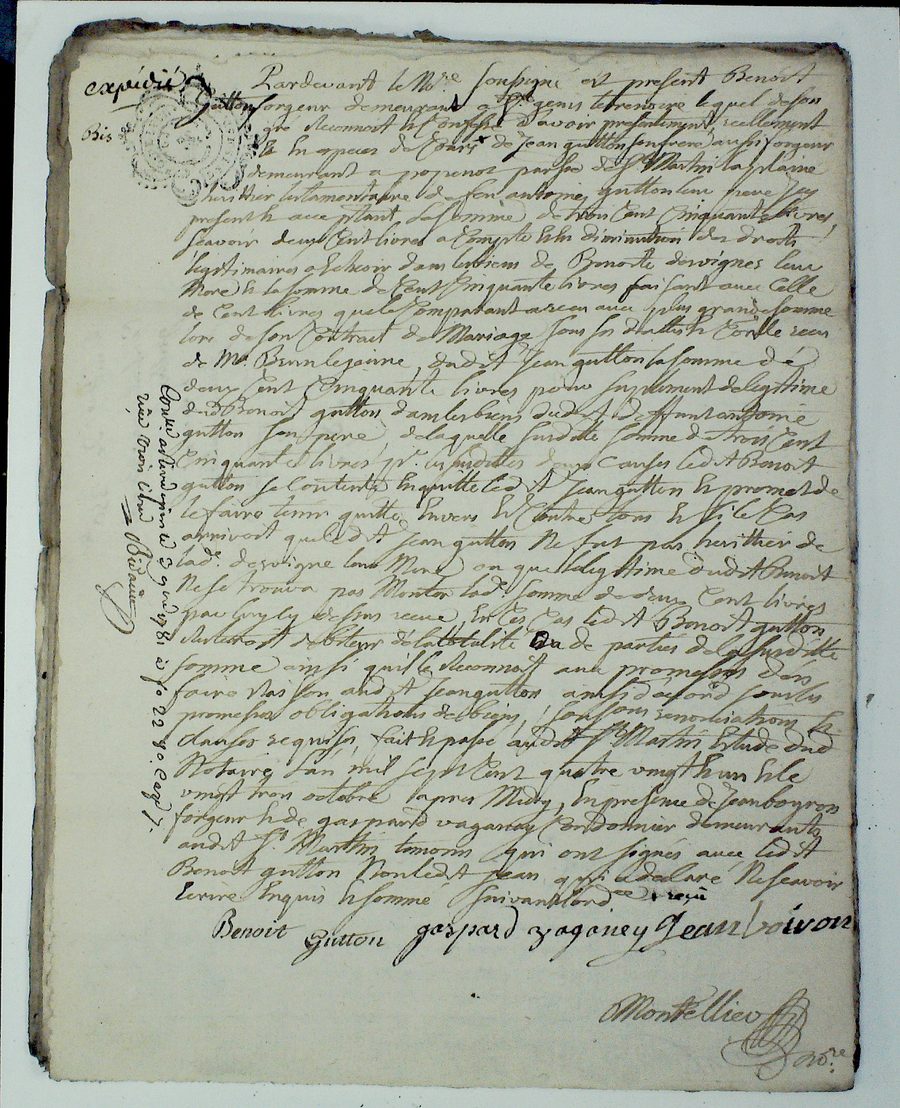 expédié
Bis
Pardevant le No.re soussigné est present Benoit
Gutton forgeur demeurant a St genis terrenoire lequel de son
gré reconnoit et confesse d'avoir presentement, reellement
& en especes de Cours de Jean gutton son frere aussi forgeur
demeurant a proponot parsse de St Martin la plaine
heritier testamentaire de feu antoine gutton leur pere icy
present et acceptant la somme de trois Cent Cinquante livres
scavoir deux Cent livres a Compte et en diminution des droits
legitimaires a Echeoir dans les biens de Benoite desvignes leur
Mere et la somme de Cent Cinquante livres faisant avec Celle
de Cent livres que le Comparant a recu au plus grande somme
lors de son Contrat de Mariage sous ses dattes et Controlle recu
de Me lejeune, dudit Jean gutton la somme de
deux Cent Cinquante livres pour suplement de legitime
dud Benoit gutton dans les biens dudit deffunt antoine
gutton son pere de laquelle susditte somme de trois Cent
Cinquante livres pr susdittes deux Causes ledit Benoit
gutton se Contente En quitte led.t Jean gutton et promet de
le faire tenir quitte Envers et Contre tous et si le Cas
arrivoit que led.t Jean gutton Ne fut pas heritier de
lad.e desvigne leur Mere ou que legitime dudit Benoit
Ne se trouva pas Monter lad. somme de deux Cent livres
par luy Cy dessus receue, En Ces Cas ledit Benoit gutton
debiteur de la totalité ou de parties de la susditte
somme ainsi qu'il le reconnoit avec promesses d'en
faire raison audit Jean gutton ainsi d'acord sous les
promesses obligations de biens, soumissions renonciations et
clauses requises, fait et passé audit St Martin Etude dud
Notaire L'an mil sept Cent quatre vingt un et le
vingt trois octobre apres Midy, En presence de Jean boyron
forgeur et de gaspard vaganay Cordonnier demeurants
audit St Martin temoins qui ont signés avec ledit
Benoit gutton Non ledit Jean qui a declaré Ne scavoir
Ecrire Enquis et sommé suivant l'ord.ce
Benoit Gutton gaspard vaganey Jean boivon
Montellier
no.re
Con.lé a Rivedegier le 3 9bre 1781 fo 22 vo. Caze 7.
reçu trois livres